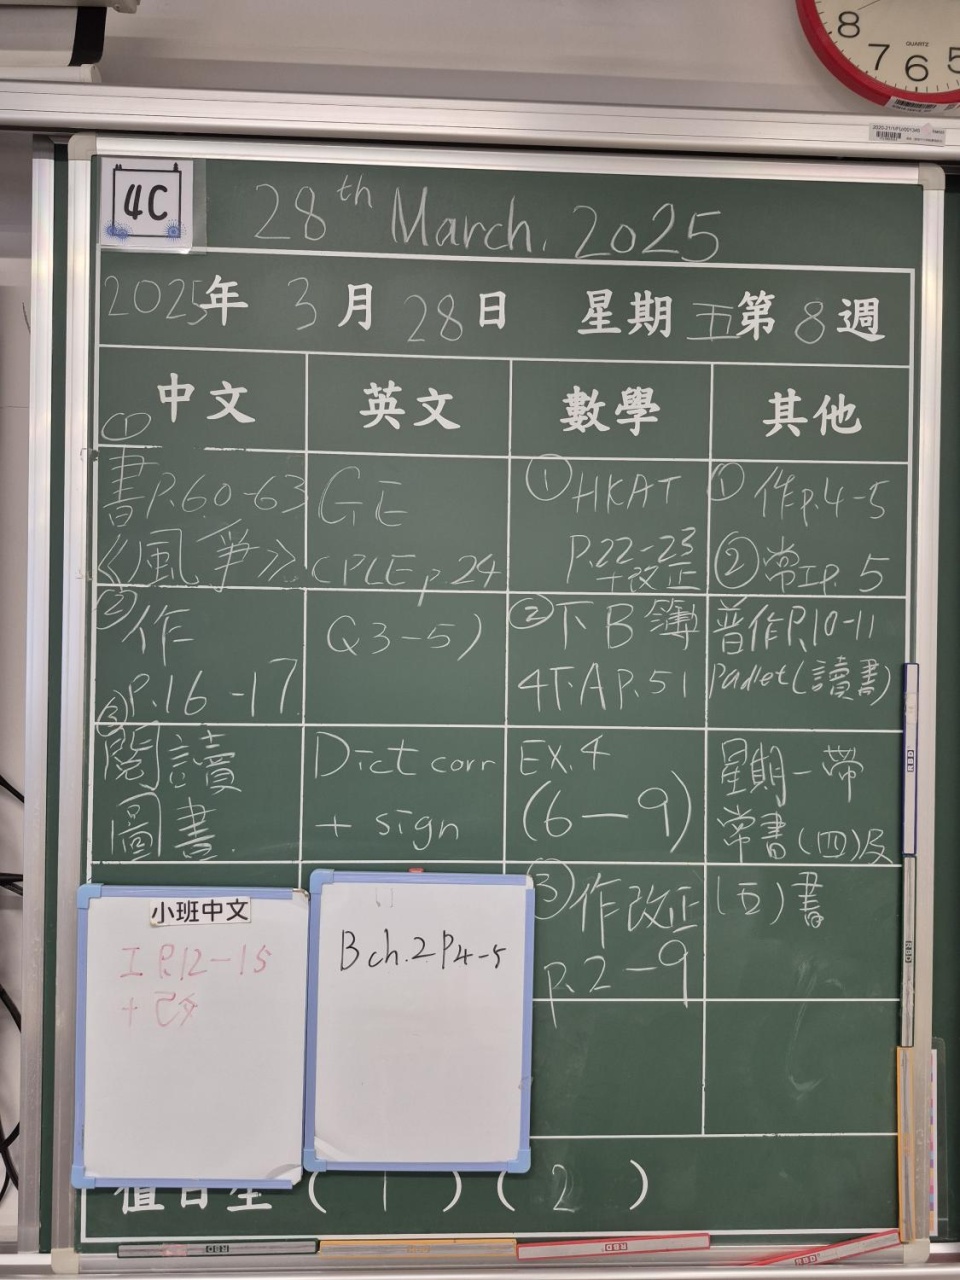 8
7
6
5
QUARTZ
4C
28th March, 2025
2025年 3月 28日 星期五第8週
中文
英文
數學
其他
①
書P.60-63
《風爭》
②作
P.16-17
③
閱讀
圖書
GE
(PLE p.24
Q3-5)
Dict corr
+ sign
①HKAT
P.22-23
+改正
②下B簿
4下A P.51
EX.4
(6-9)
③作改正
p.2-9
①作p.4-5
②常IP.5
普作P.10-11
Padlet(讀書)
星期一帶
常書(四)及
(五)書
小班中文
工P.12-15
B ch.2 P4-5
值日生(1)(2)